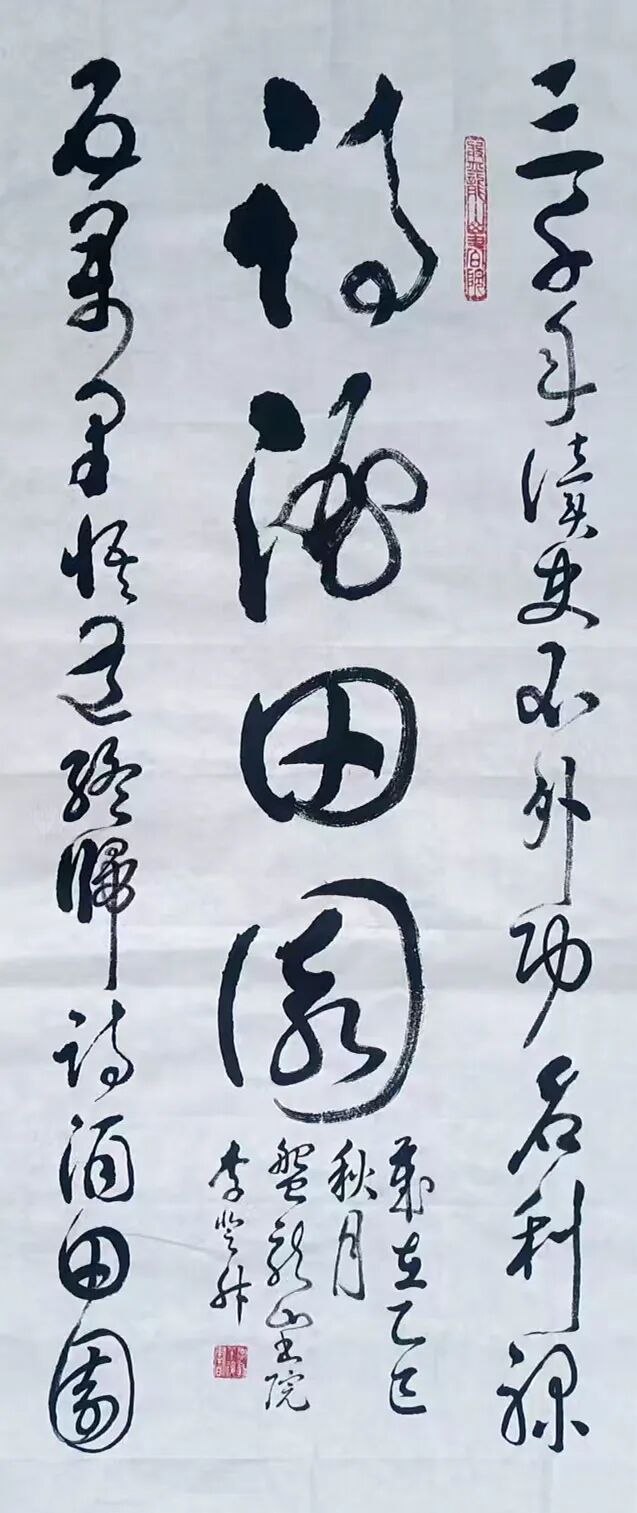 三千年读史不外功名利禄
诗酒田园
岁在乙巳
秋月
盘龙山书院
李
百万里悟道终归诗酒田园